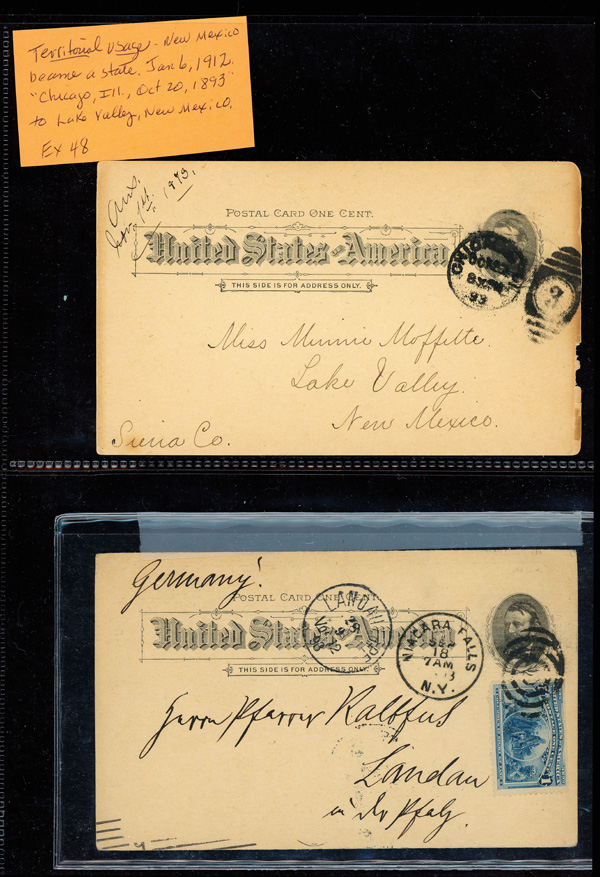 Territorial usage - New Mexico
became a state. Jan 6, 1912.
"Chicago, Ill., Oct 20, 1893"
to Lake Valley, New Mexico.
Ex 48
Ans.
1st. 1893.
POSTAL CARD ONE CENT.
United States of America
THIS SIDE IS FOR ADDRESS ONLY.
CHICAGO
93
2
Miss Minnie Moffitte.
Lake Valley.
New Mexico.
Sierra Co.
Germany!
POSTAL CARD ONE CENT.
United States of America
THIS SIDE IS FOR ADDRESS ONLY.
LANDAU
29
93
NIAGARA FALLS
18
7AM
N.Y.
Herrn Pfarrer Kalbfus
Landau
in der Pfalz.
1